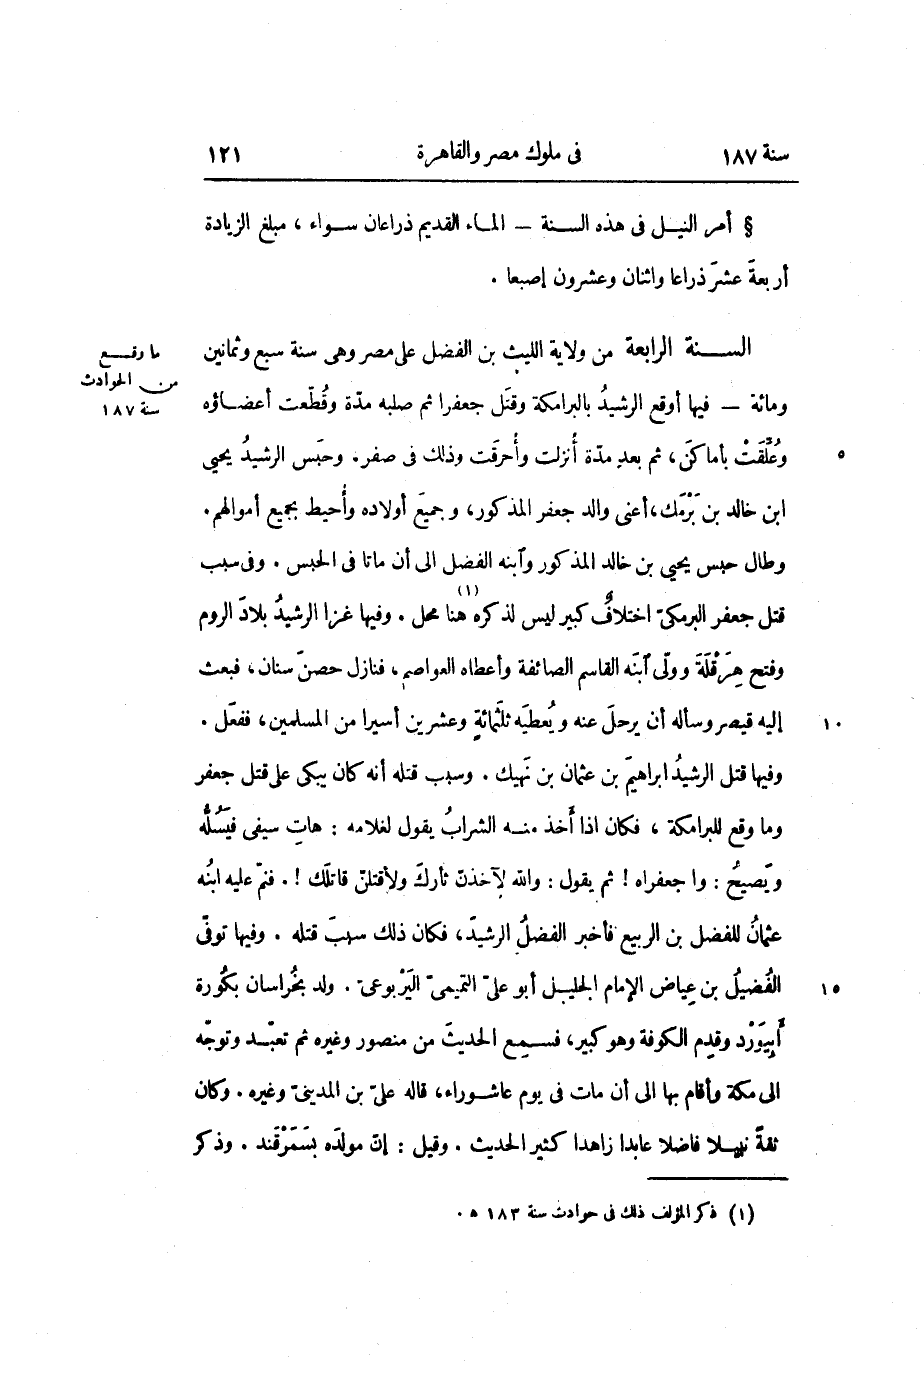 سنة ١٨٧ فى ملوك مصر والقاهرة ١٢١
§ أمر النيل فى هذه السنة — الماء القديم ذراعان سواء ، مبلغ الزيادة
أربعةَ عشرَ ذراعا واثنان وعشرون إصبعا .
السنة الرابعة من ولاية الليث بن الفضل على مصر وهى سنة سبع وثمانين
ما وقع
من الحوادث
سنة ١٨٧
ومائة — فيها أوقع الرشيدُ بالبرامكة وقتَل جعفرا ثم صلبه مدّة وقُطّعت أعضاؤه
وعُلِّقَتْ بأماكنَ، ثم بعد مدّة أُنزلت وأُحرقت وذلك فى صفر. وحبَس الرشيدُ يحيى ٥
ابن خالد بن بَرْمَك،أعنى والد جعفر المذكور، وجميعَ أولاده وأُحيط بجميع أموالهم.
وطال حبس يحيى بن خالد المذكور وآبنه الفضل الى أن ماتا فى الحبس . وفى سبب
قتل جعفر البرمكىّ اختلافٌ كبير ليس لذكره هنا محل (١) . وفيها غزا الرشيدُ بلادَ الروم
وفتح هِرَقْلَةَ وولّى آبنَه القاسم الصائفة وأعطاه العواصم، فنازل حصنَ سنان، فبعث
إليه قيصر وسأله أن يرحلَ عنه ويُعطيَه ثلثَمائةٍ وعشرين أسيرا من المسلمين، ففعَل . ١٠
وفيها قتل الرشيدُ ابراهيمَ بن عثمان بن نَهِيك . وسبب قتله أنه كان يبكى على قتل جعفر
وما وقع للبرامكة ، فكان اذا أَخذ منه الشرابُ يقول لغلامه : هاتِ سيفى فيَسُلُّه
ويَصيحُ : وا جعفراه ! ثم يقول : والله لآخذنّ ثأركَ ولأقتلنّ قاتلَك !. فنمّ عليه ابنُه
عثمانُ للفضل بن الربيع فأخبر الفضلُ الرشيدَ، فكان ذلك سببَ قتله . وفيها توفّى
الفُضيلُ بن عِياض الإمام الجليل أبو علىّ التميمىّ اليَرْبوعىّ . ولد بخُراسان بكُورة ١٥
أَبِيوَرْد وقدِم الكوفة وهو كبير، فسمِع الحديثَ من منصور وغيره ثم تعبّد وتوجّه
الى مكة وأقام بها الى أن مات فى يوم عاشوراء، قاله علىّ بن المدينىّ وغيره . وكان
ثقةً نبيلا فاضلا عابدا زاهدا كثير الحديث . وقيل : إنّ مولدَه بسَمَرْقَند . وذكر
(١) ذكر المؤلف ذلك فى حوادث سنة ١٨٣ ه .